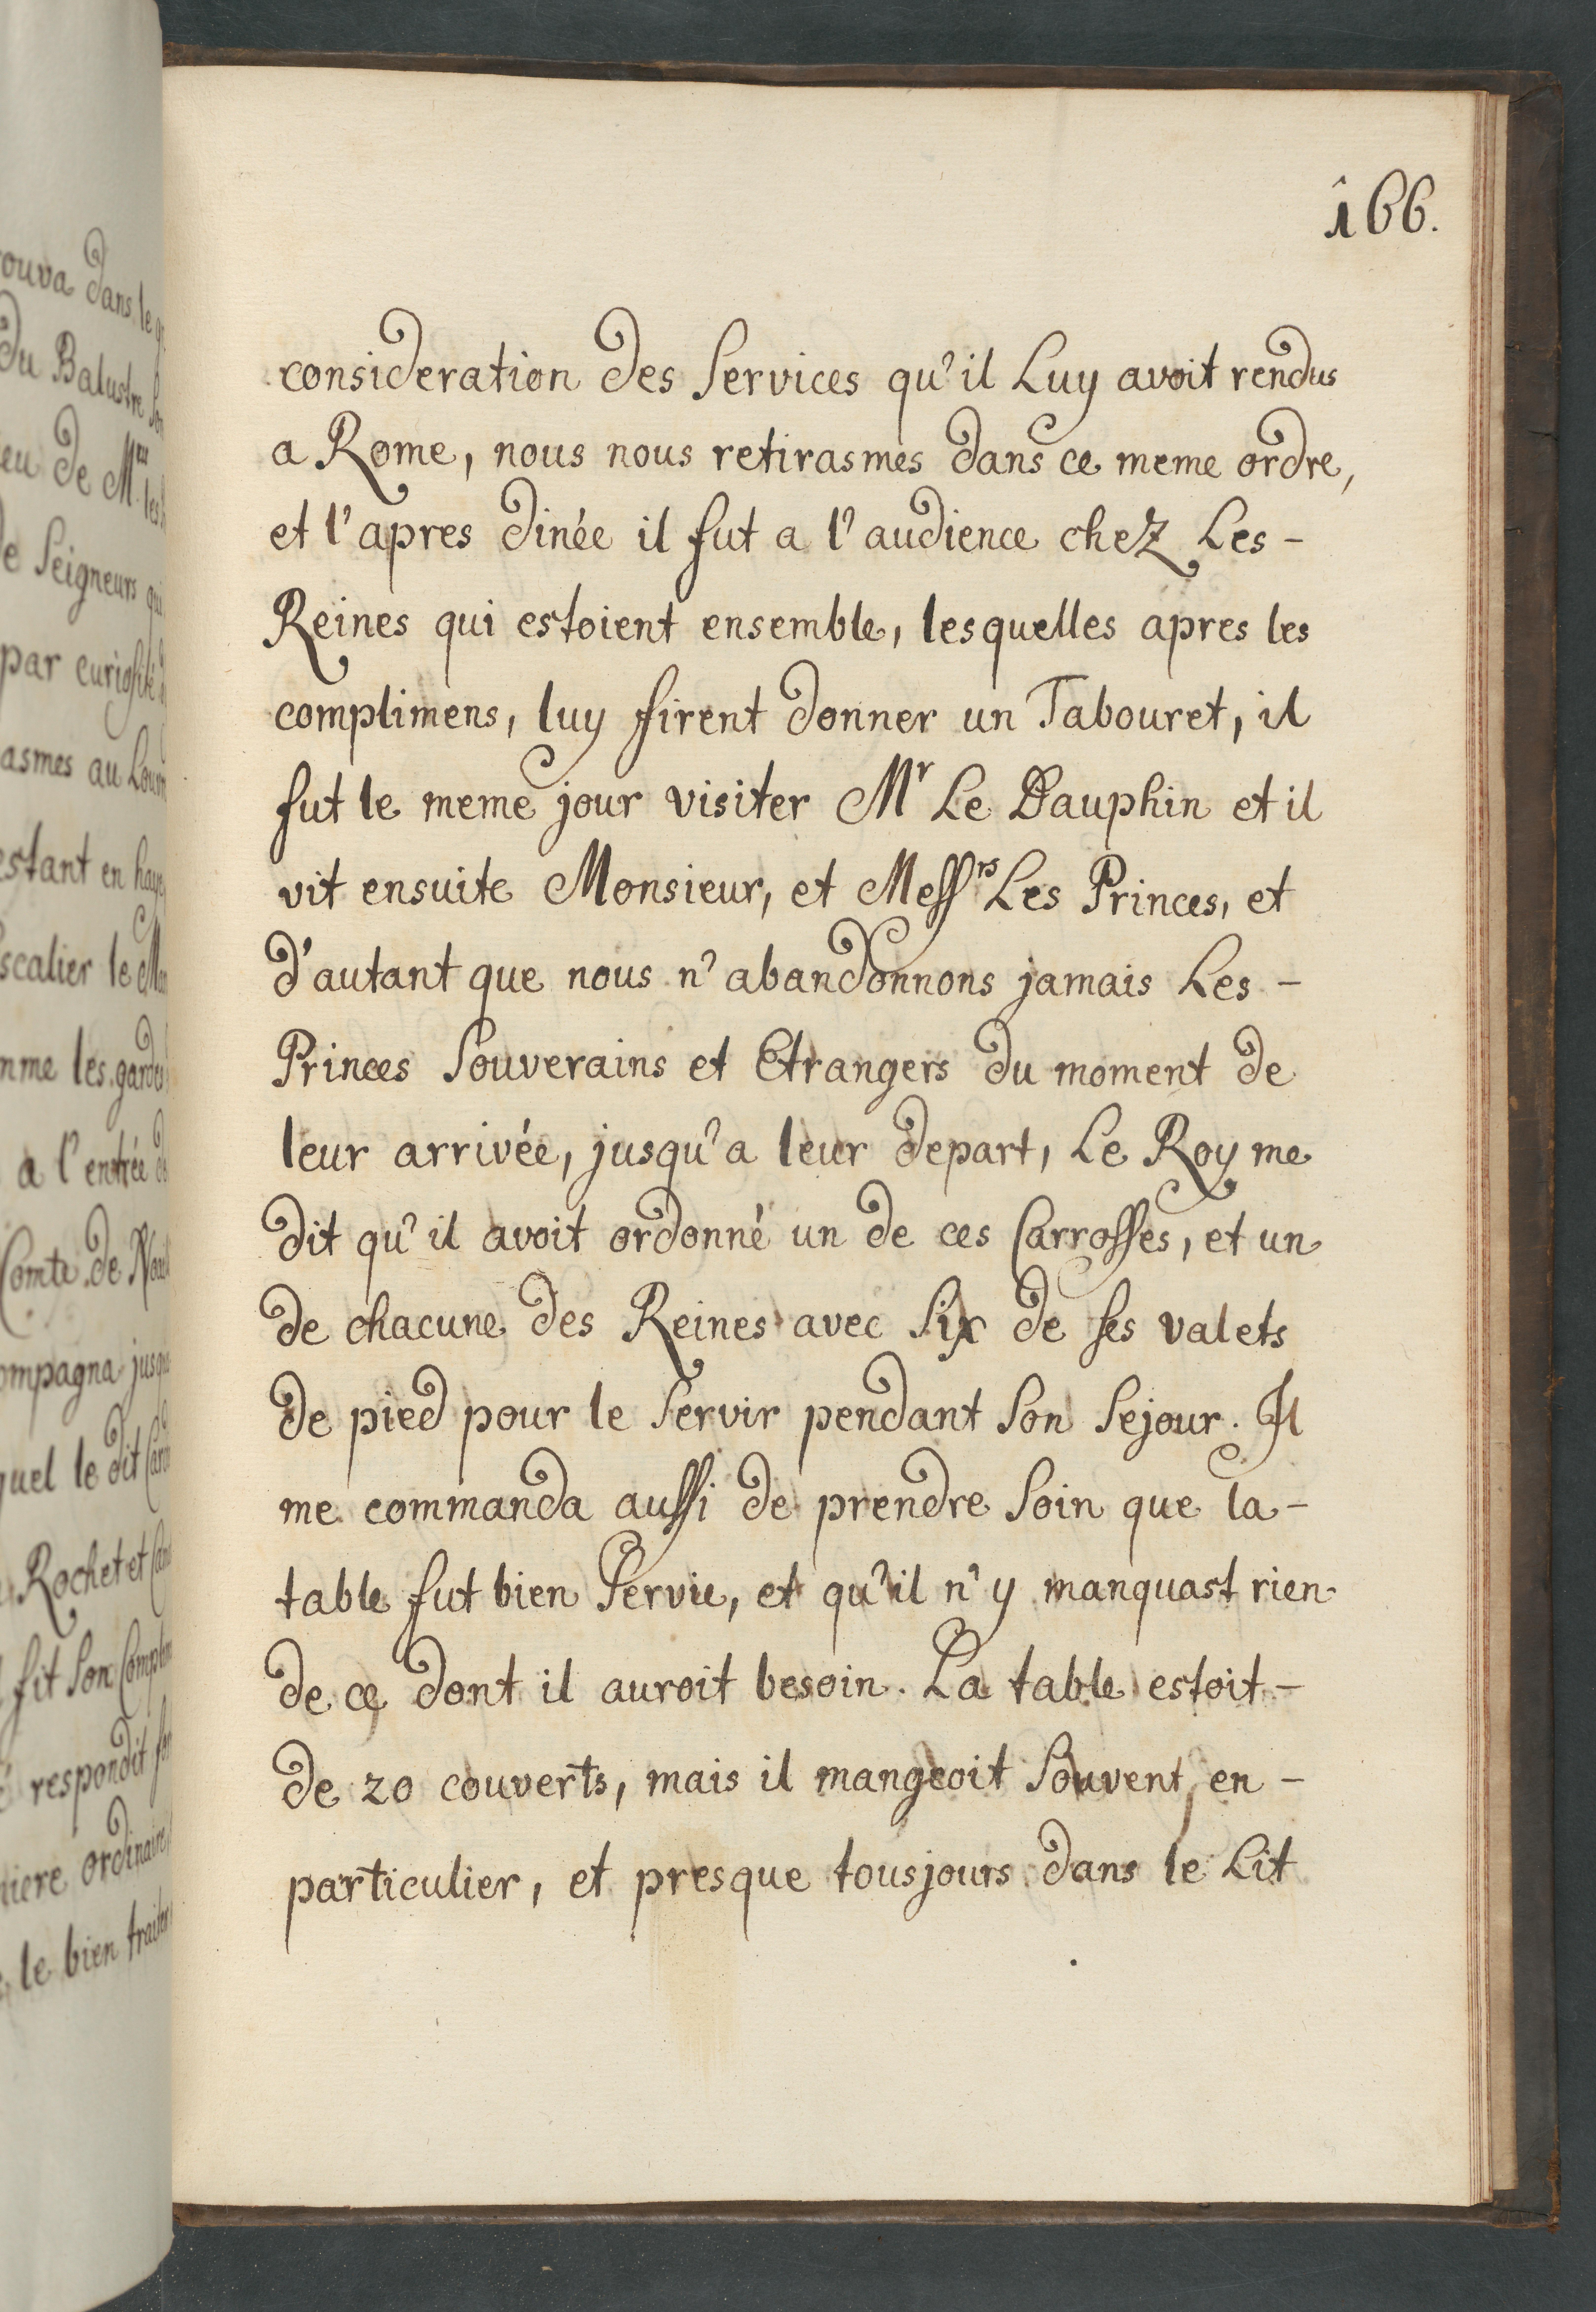 ouva dans le
du Balustre
eu de M
de Seigneurs qui
par curiosité
asmes au Louv
estant en haye
scalier le
mme les gardes
a l'entrée
Comte de
ompagna jusq
quel le dit
Rochet et
fit son
respondit
niere ordinaire
le bien traiter
166.
consideration des Services qu'il Luy avoit rendus
a Rome, nous nous retirasmes dans ce meme ordre,
et l'apres dinée il fut a l'audience chez Les -
Reines qui estoient ensemble, lesquelles apres les
complimens, luy firent donner un Tabouret, il
fut le meme jour visiter Mr Le Dauphin et il
vit ensuite Monsieur, et Messrs Les Princes, et
d'autant que nous n'abandonnons jamais Les -
Princes Souverains et Etrangers du moment de
leur arrivée, jusqu'a leur depart, Le Roy me
dit qu'il avoit ordonné un de ces Carrosses, et un
de chacune des Reines avec Six de ses valets
de pied pour le Servir pendant Son Sejour. Il
me commanda aussi de prendre Soin que la -
table fut bien Servie, et qu'il n'y manquast rien
de ce dont il auroit besoin. La table estoit -
de 20 couverts, mais il mangeoit Souvent en -
particulier, et presque tousjours dans le Lit